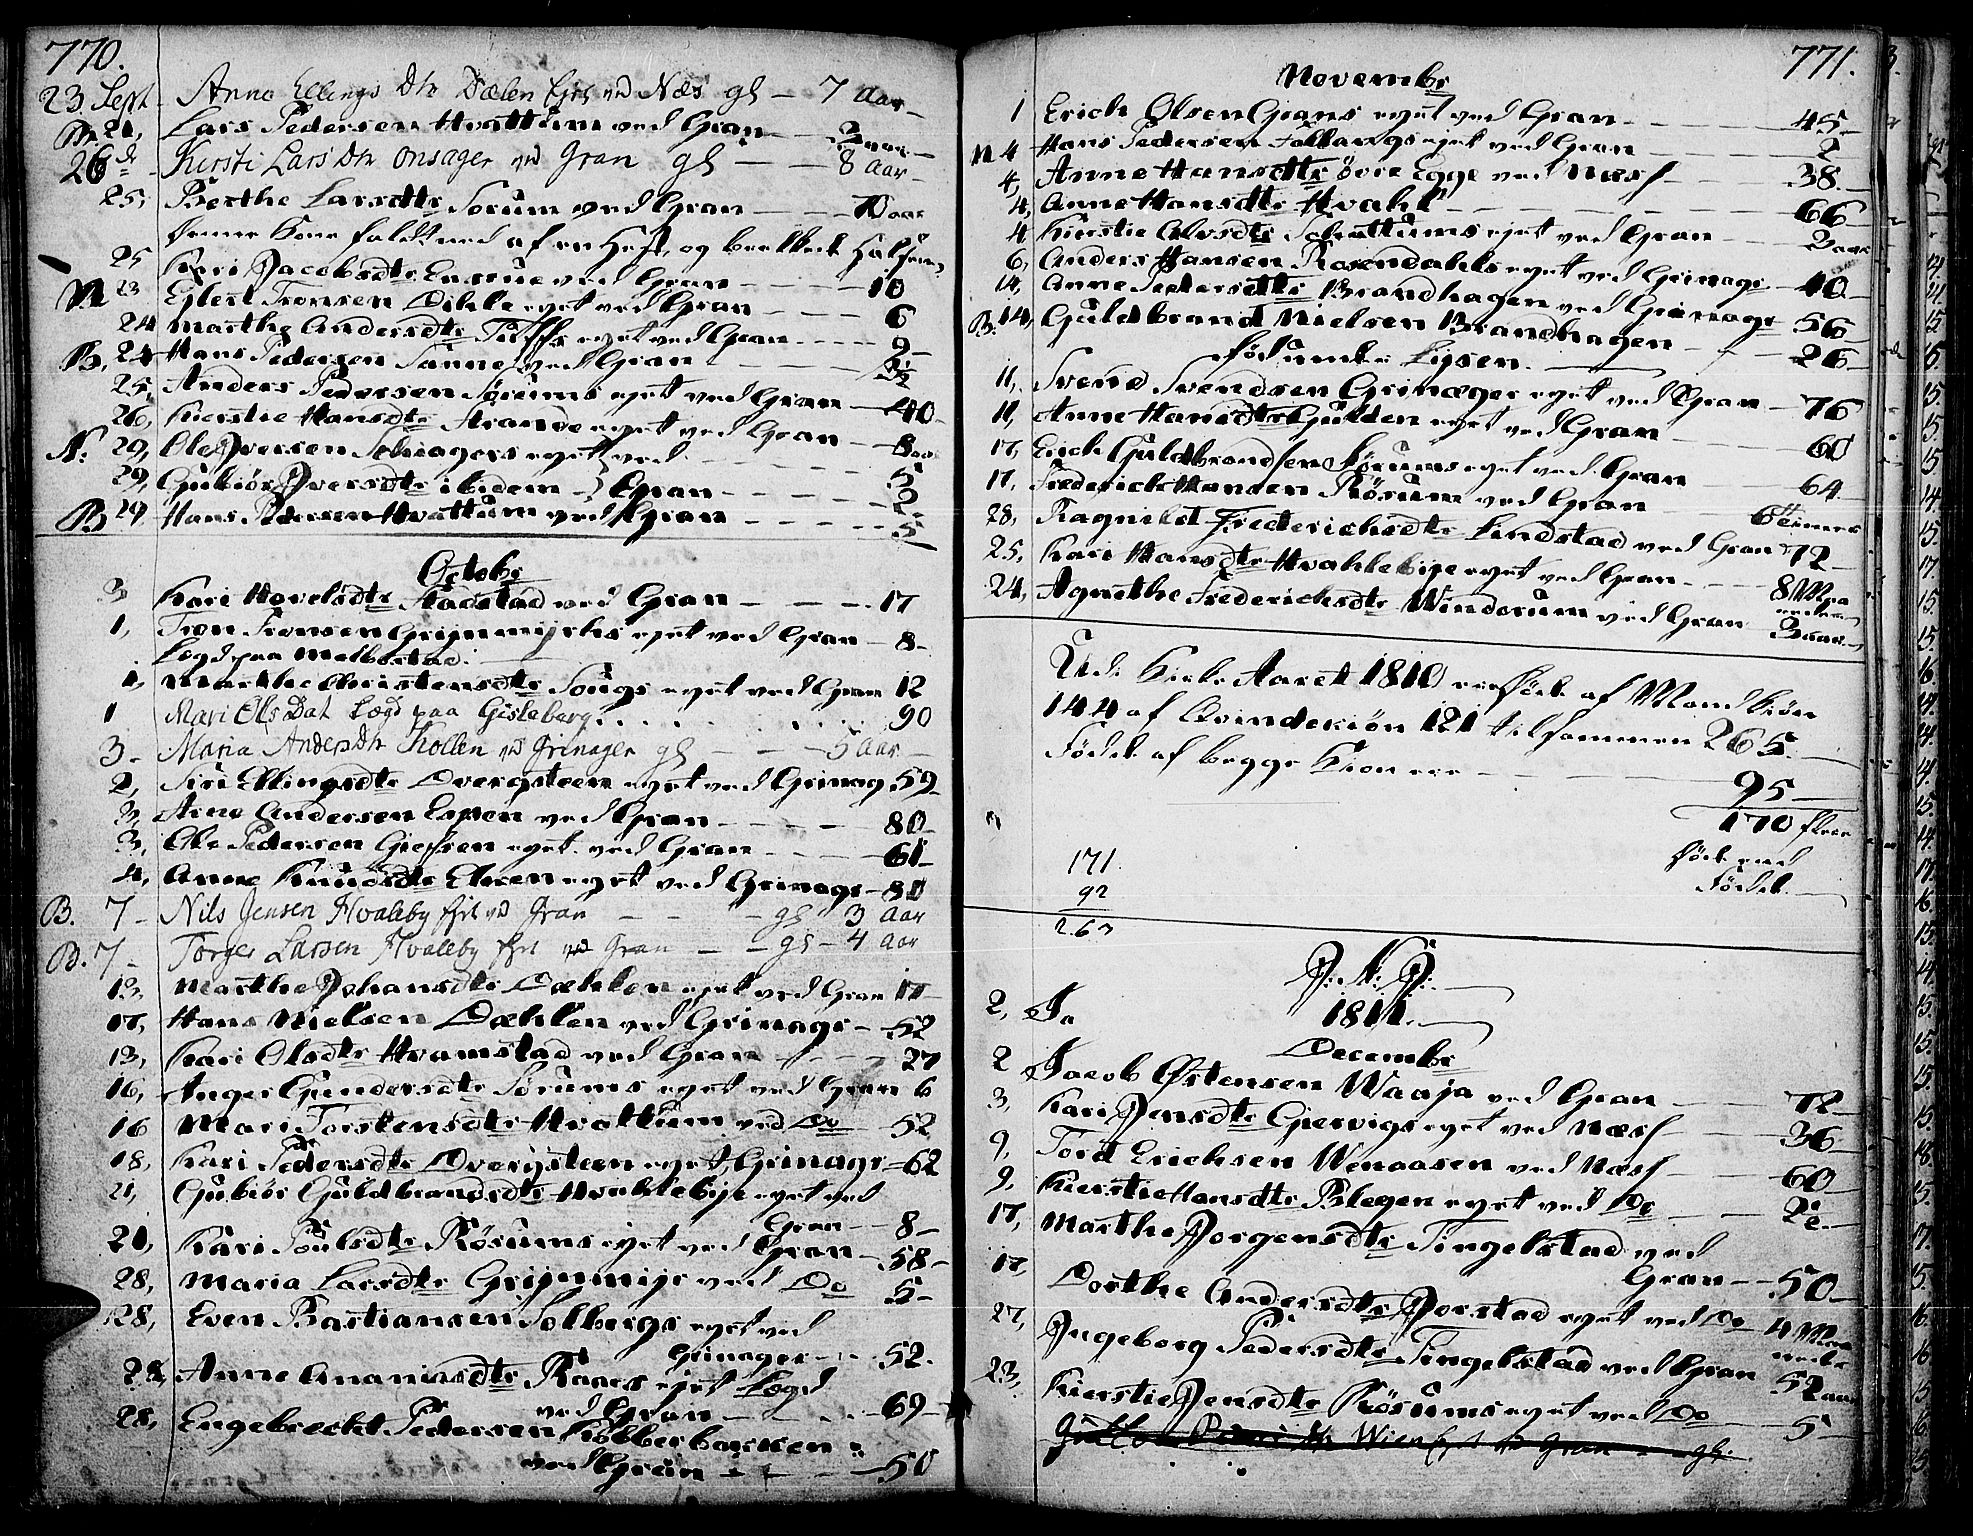 770.
23 Sept. Anne Ellings Dtr Dælen Ejet ved Næs gl — 7 Aar
B. 21, Lars Pedersen Hvattum ved Gran — 3 aar
26 de Kersti Lars Dtr Onsager ved Gran gl — 8 Aar
25, Berthe Larsdtr Sorum ved Gran — 70 aar
Denne Kone faldt ned af en Hest, og brækket Halsen
25 Kari Jacobsdtr ved Gran — 10
N 23 Eylert Tronsen eyet ved Gran — 6
24 Marthe Andersdtr eyet ved Gran — 9
B. 24 Hans Pedersen Sanne ved Gran — 3½
25, Anders Pedersen Sørums eyet ved Gran — 40
26, Kierstie Hansdtr Strande eyet ved Gran — 8 aar
N. 29, Ole Iversen eyet ved — 5
29, Gubiør Iversdtr ibidem Gran — 2
B 29 Hans Pedersen Hvattum ved Gran — 5
Octobr
3 Kari Hovelsdtr Stadstad ved Gran — 17
1, Tron Tronsen Grijnmyrhs eyet ved Gran — 8
Lægd paa Melbostad.
1, Marthe Christensdtr Sougs eyet ved Gran 12
1 Mari Ols Dat Lægd paa Gisleberg. 90
3 - Maria Anders Dtr Kollen ved Grinager gl — 5 Aar
2, Siri Ellingsdtr Dvergsteen eyet ved Grinag. 59
3, Arne Andersen Espen ved Gran — 80
3, Ole Pedersen eyet ved Gran — 61
4, Anne Knudsdtr eyet ved Grinagr — 80
B. 7 - Nils Jensen Hvaleby Ejet ved Gran — gl 3 Aar
B. 7 - Torger Larsen Hvaleby Ejet ved Gran — gl — 4 Aar
13, Marthe Johansdtr Dæhlen eyet ved Gran 10
17, Hans Nielsen Dæhlen ved Grinagr — 52
13, Kari Olsdtr Hvamstad ved Gran — 27
16, Anger Gundersdtr Sørums eyet ved Gran 6
16 Mari Torstensdtr Hvattum ved Do 52
18, Kari Pedersdtr Dvergsteen eyet, Grinagr — 62
21, Gubiør Guldbrandsdtr Hvahlebije eyet ved
Gran — 8
21, Kari Poulsdtr Røsums eyet ved Gran — 58
28, Maria Larsdtr Grijnmijr ved Do 5
28, Even Bastiansen Solbergs eyet ved
Grinager — 52.
28, Anne eyet Lægd
ved Gran — 69
28, Engebrecht Pedersen Kobberbacken
ved Gran — 50
771.
Novembr
1 Erich Olsen Grans eyet ved Gran — 45
N 4 Hans Pedersen eyet ved Gran — 2
4, Anne Hansdtr øvre Egge ved Næss — 38
4, Anne Hansdtr Hvahl — 66
4 Kierstie Olesdtr eyet ved Gran — 3 aar
6, Anders Hansen Rosendahls eyet ved Grinagr
14, Anne Pedersdtr Brandhagen ved Grinagr — 40
B. 14, Guldbrand Nielsen Brandhagen — 56
26
11, Svend Svendsen Grinager eyet ved Gran — 76
11, Anne Hansdtr Gulden eyet ved Gran — 60
17, Erich Guldbrandsen Sørums eyet ved Gran — 64
17, Frederich Hansen Røsum ved Gran — 6 Timer
28, Ragnild Frederichsdtr Lindstad ved Gran 72
25, Kari Hansdtr Hvahlebije eyet ved Gran — 8 Maaneder
24, Agnethe Frederichsdtr Winderum ved Gran 3 aar
Udi Kirke Aaret 1810 ere føde af Mandkiøn
144 af Qvindekiøn 121 tilsammen 265.
Dødde af begge Kiøn ere — 95
170 flere
fødte end
dødde
171.
92
263
J. N. J.
1811.
2, Ja
Decembr
2 Jacob Østensen Waaja ved Gran — 72
3, Kari Jensdtr Giervigs eyet ved Næss — 36
9, Tord Erichsen Wenaasen ved Næss — 60
9, Kierstie Hansdtr Blegen eyet ved Do 22
17, Marthe Jorgensdtr Tingelstad ved
Gran — 50
17, Dorthe Andersdtr Jorstad eyet ved Do 4 Maaneder
27, Ingeborg Pedersdtr Tingelstad ved Gran 52 aar
23, Kierstie Jensdtr Røsums eyet ved Do 5